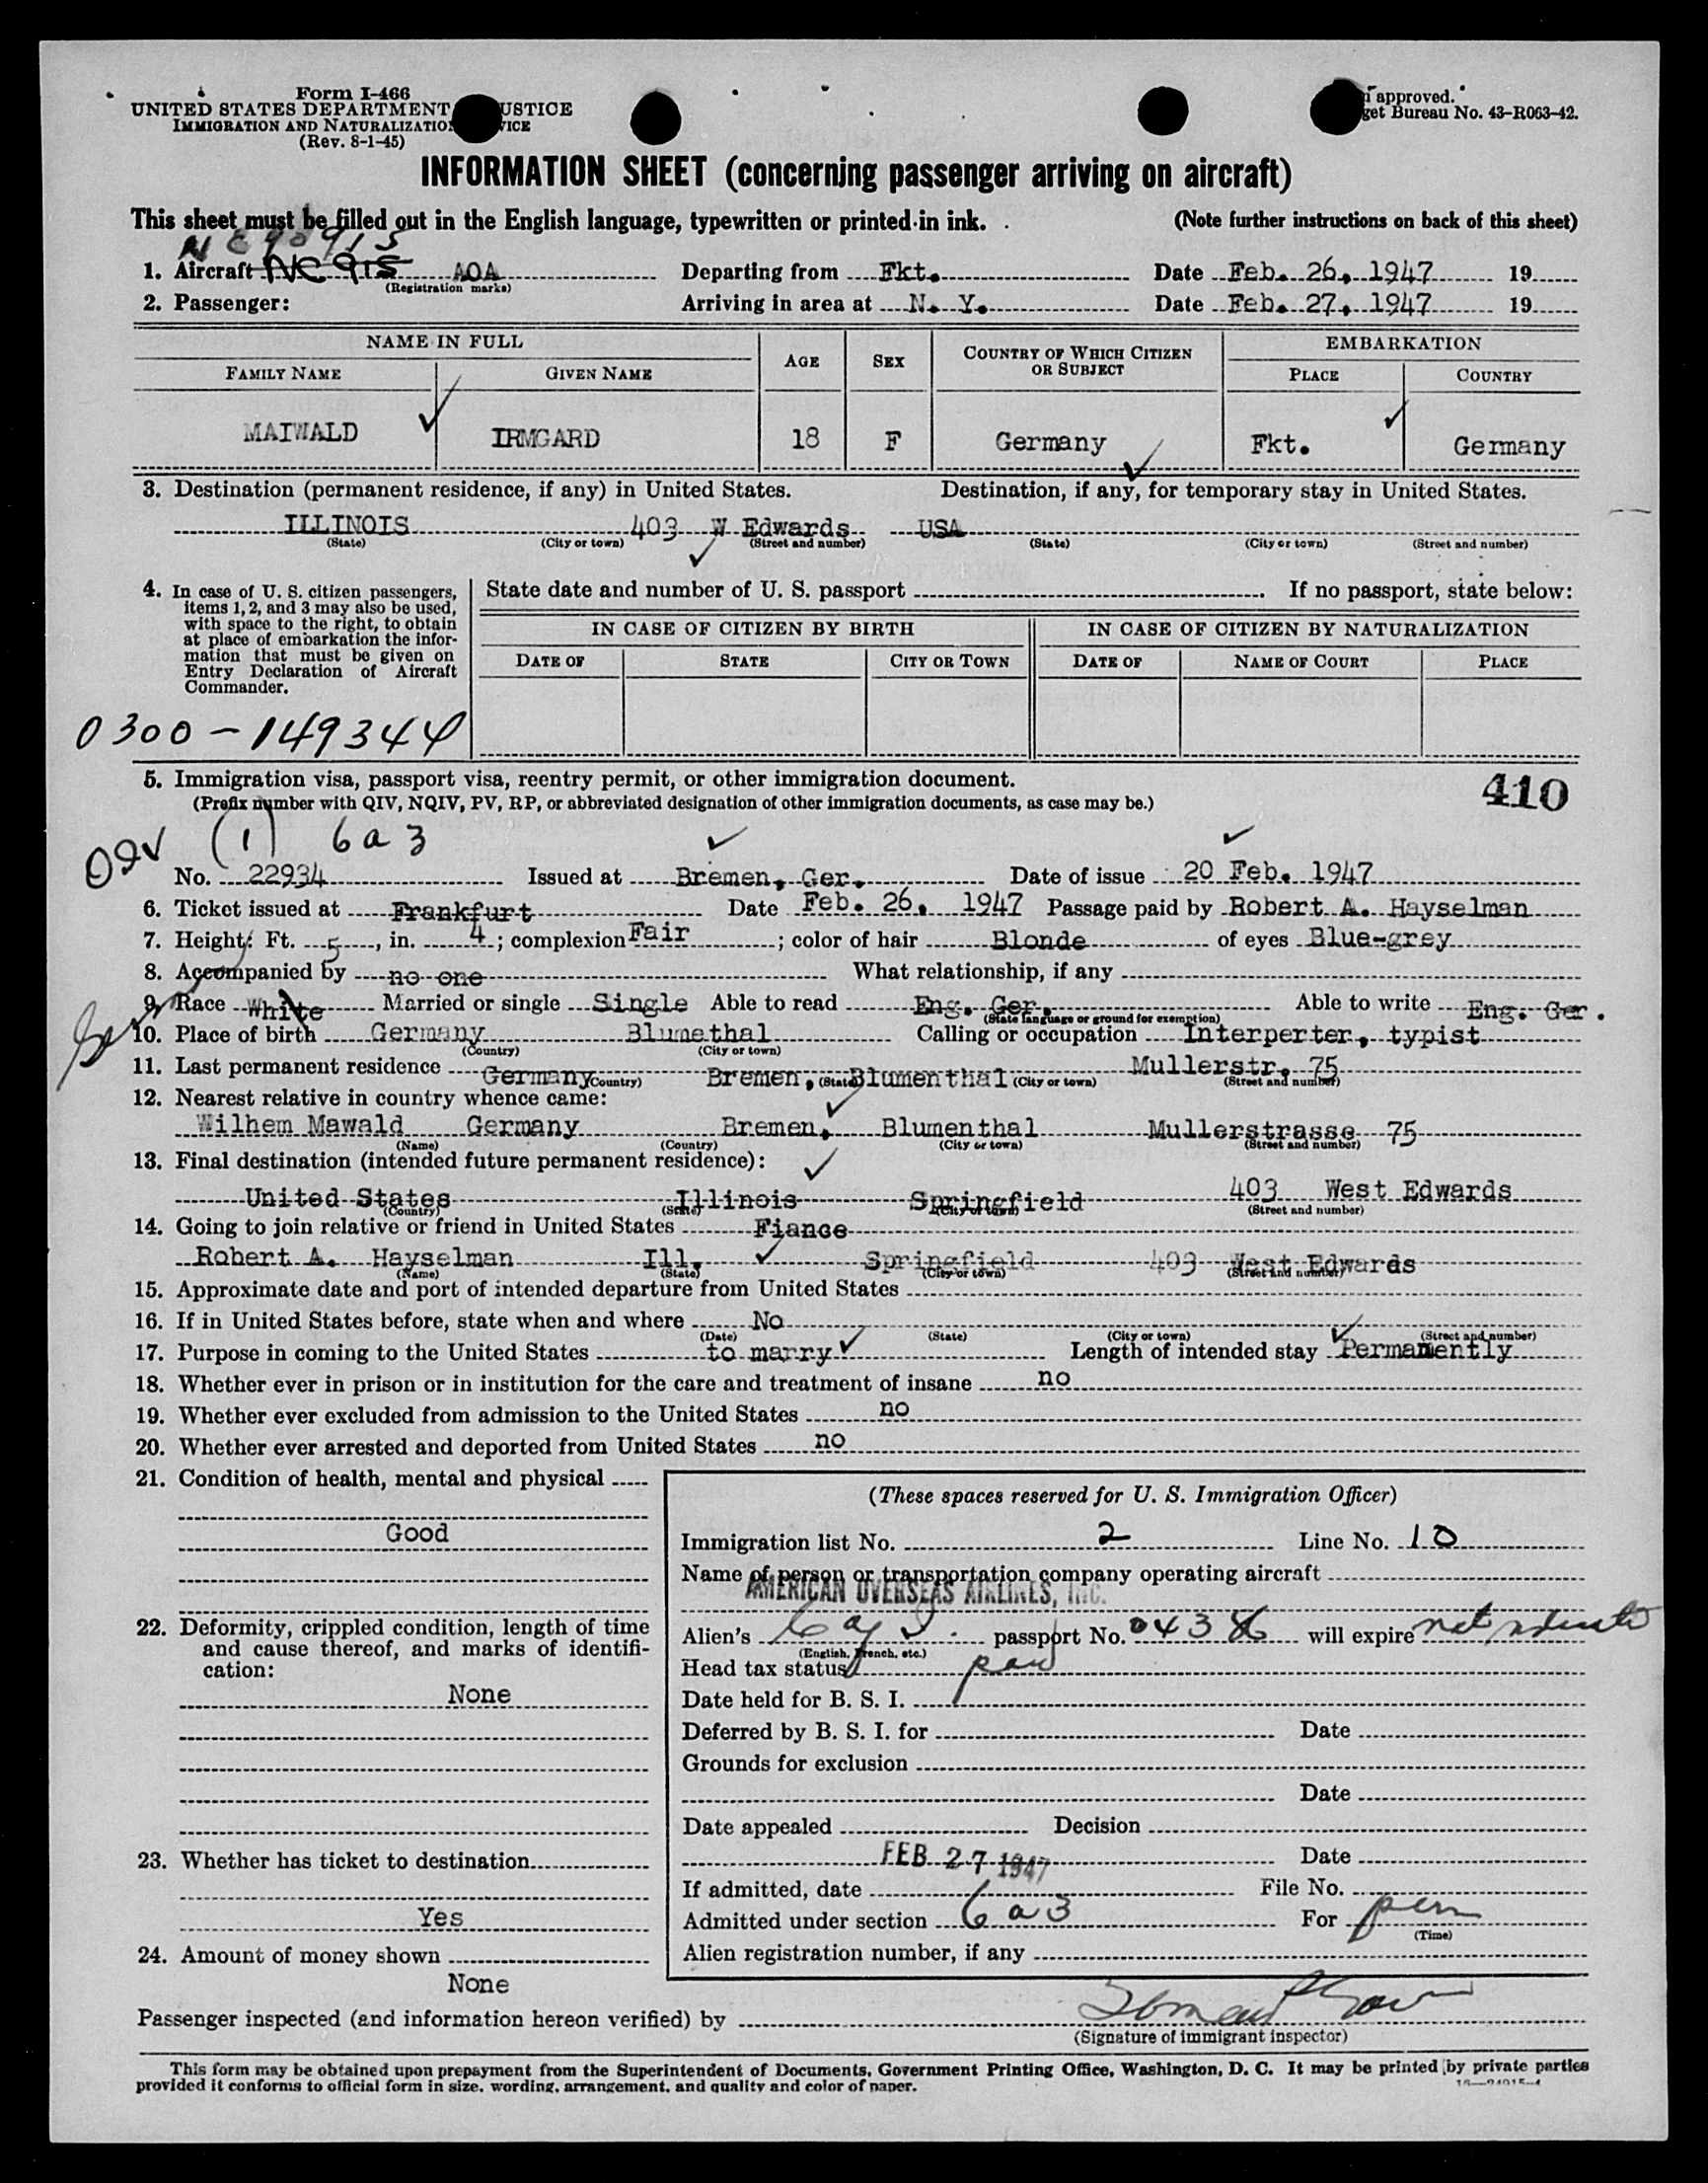 Form I-466
UNITED STATES DEPARTMENT USTICE
IMMIGRATION AND NATURALIZATIO VICE
(Rev. 8-1-45)
approved.
get Bureau No. 43-R063-42.
INFORMATION SHEET (concerning passenger arriving on aircraft)
This sheet must be filled out in the English language, typewritten or printed in ink. (Note further instructions on back of this sheet)
1. Aircraft NC 915 AOA Departing from Fkt. Date Feb. 26, 1947 19
(Registration marks)
2. Passenger: Arriving in area at N. Y. Date Feb. 27, 1947 19
NAME IN FULL AGE SEX COUNTRY OF WHICH CITIZEN OR SUBJECT EMBARKATION
FAMILY NAME GIVEN NAME PLACE COUNTRY
MAIWALD IRMGARD 18 F Germany Fkt. Germany
3. Destination (permanent residence, if any) in United States. Destination, if any, for temporary stay in United States.
ILLINOIS 403 W Edwards USA
(State) (City or town) (Street and number) (State) (City or town) (Street and number)
4. In case of U. S. citizen passengers, items 1, 2, and 3 may also be used, with space to the right, to obtain at place of embarkation the information that must be given on Entry Declaration of Aircraft Commander.
State date and number of U. S. passport . If no passport, state below:
IN CASE OF CITIZEN BY BIRTH IN CASE OF CITIZEN BY NATURALIZATION
DATE OF STATE CITY OR TOWN DATE OF NAME OF COURT PLACE
0300-149344
5. Immigration visa, passport visa, reentry permit, or other immigration document.
410
(Prefix number with QIV, NQIV, PV, RP, or abbreviated designation of other immigration documents, as case may be.)
(1) 6a3
No. 22934 Issued at Bremen, Ger. Date of issue 20 Feb. 1947
6. Ticket issued at Frankfurt Date Feb. 26, 1947 Passage paid by Robert A. Hayselman
7. Height: Ft. 5, in. 4; complexion Fair; color of hair Blonde of eyes Blue-grey
8. Accompanied by no one What relationship, if any
9. Race White Married or single Single Able to read Eng. Ger. Able to write Eng. Ger.
(State language or ground for exemption)
10. Place of birth Germany Blumethal Calling or occupation Interperter, typist
(Country) (City or town)
11. Last permanent residence Germany Bremen, Blumenthal Mullerstr. 75
(Country) (State) (City or town) (Street and number)
12. Nearest relative in country whence came:
Wilhem Mawald Germany Bremen, Blumenthal Mullerstrasse 75
(Name) (Country) (City or town) (Street and number)
13. Final destination (intended future permanent residence):
United States Illinois Springfield 403 West Edwards
(Country) (State) (City or town) (Street and number)
14. Going to join relative or friend in United States Fiance
Robert A. Hayselman Ill. Springfield 403 West Edwards
(Name) (State) (City or town) (Street and number)
15. Approximate date and port of intended departure from United States
16. If in United States before, state when and where No
(Date) (State) (City or town) (Street and number)
17. Purpose in coming to the United States to marry Length of intended stay Permanently
18. Whether ever in prison or in institution for the care and treatment of insane no
19. Whether ever excluded from admission to the United States no
20. Whether ever arrested and deported from United States no
21. Condition of health, mental and physical
Good
22. Deformity, crippled condition, length of time
and cause thereof, and marks of identifi-
cation:
None
23. Whether has ticket to destination
Yes
24. Amount of money shown
None
(These spaces reserved for U. S. Immigration Officer)
Immigration list No. 2 Line No. 10
Name of person or transportation company operating aircraft
AMERICAN OVERSEAS AIRLINES, INC.
Alien's passport No. will expire
(English, French, etc.)
Head tax status
Date held for B. S. I.
Deferred by B. S. I. for Date
Grounds for exclusion
Date
Date appealed Decision
FEB 27 1947 Date
If admitted, date File No.
Admitted under section 6a3 For perm
(Time)
Alien registration number, if any
Passenger inspected (and information hereon verified) by
(Signature of immigrant inspector)
This form may be obtained upon prepayment from the Superintendent of Documents, Government Printing Office, Washington, D. C. It may be printed by private parties
provided it conforms to official form in size, wording, arrangement, and quality and color of paper.